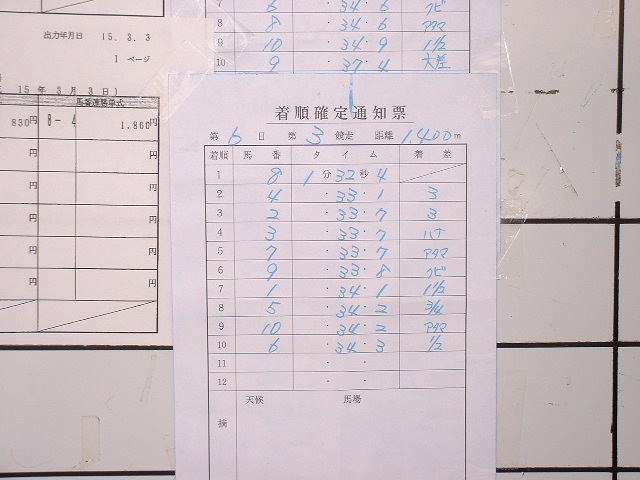 7 6 34.6 クビ
8 8 34.6 アタマ
9 10 34.9 1 1/2
10 9 37.4 大差
出力年月日 15. 3. 3
1 ページ
15 年 3 月 3 日)
馬番連勝単式
830円 8- 4 1,860円
円 円
円 円
円 円
円 円
着順確定通知票
第 6 日 第 3 競走 距離 1,400 m
着順 馬番 タイム 着差
1 8 1分32秒4
2 4 33.1 3
3 2 33.7 3
4 3 33.7 ハナ
5 7 33.7 アタマ
6 9 33.8 クビ
7 1 34.1 1 1/2
8 5 34.2 3/4
9 10 34.2 アタマ
10 6 34.3 1/2
11 . .
12 . .
天候 馬場
摘